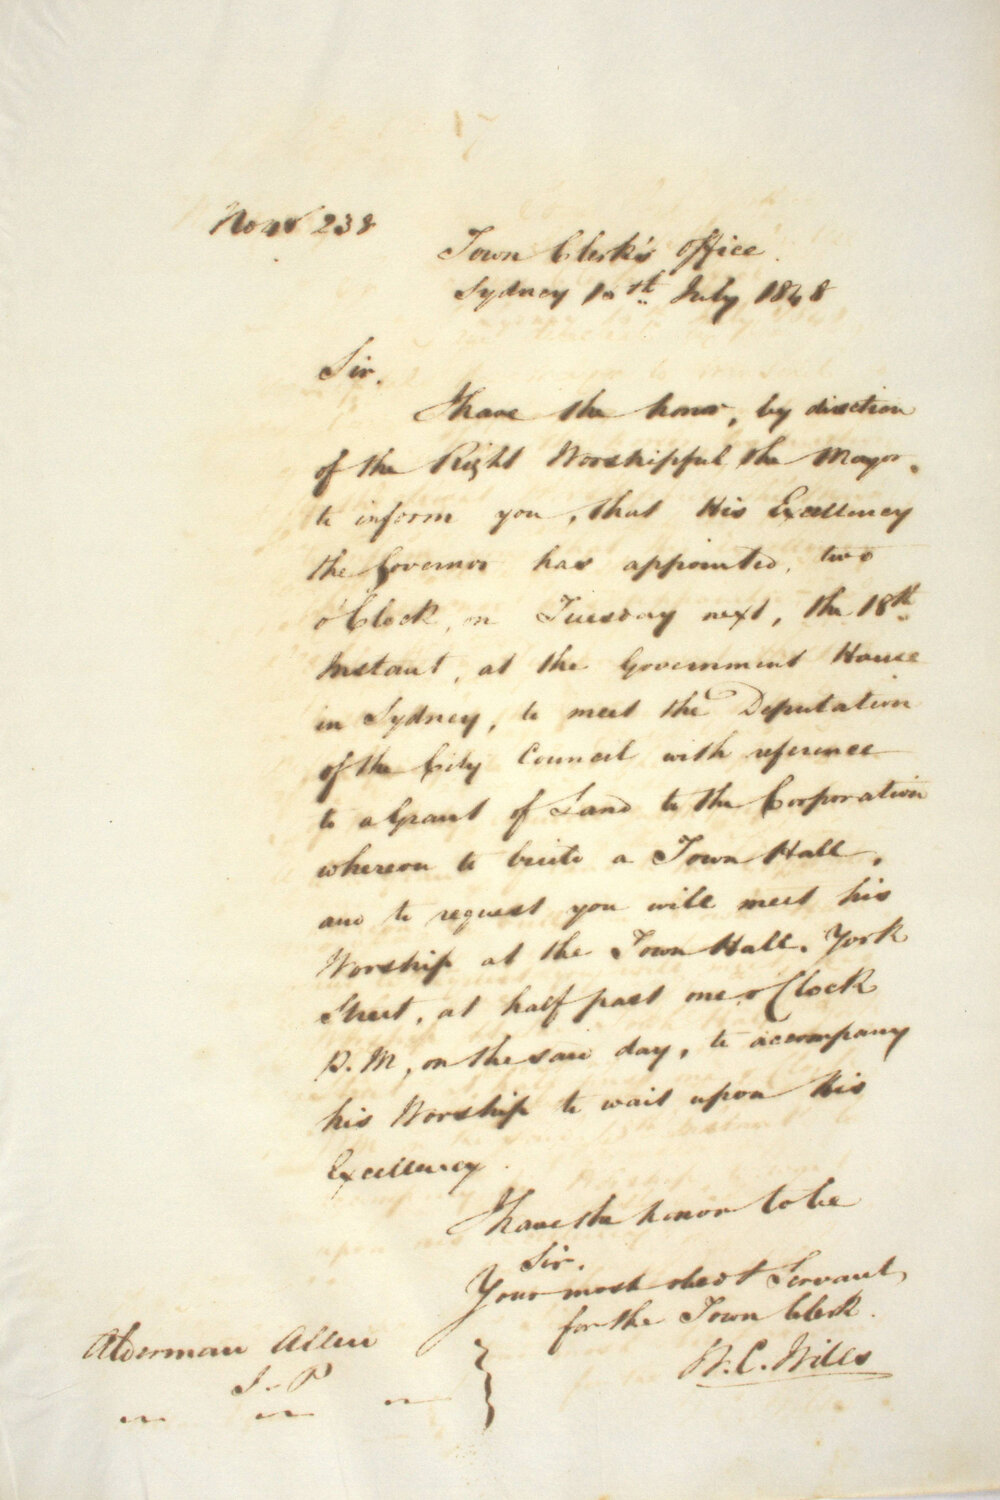 No 48/238
Town Clerk's Office.
Sydney 10th July 1848
Sir,
I have the honor, by direction
of the Right Worshipful the Mayor,
to inform you, that His Excellency
the Governor has appointed, two
o'Clock, on Tuesday next, the 18th
Instant, at the Government House
in Sydney, to meet the Deputation
of the City Council with reference
to a Grant of Land to the Corporation
whereon to build a Town Hall,
and to request you will meet his
Worship at the Town Hall, York
Street, at half past one o'Clock
P.M, on the said day, to accompany
his Worship to wait upon His
Excellency.
I have the honor to be
Sir,
Your most obedt Servant,
for the Town Clerk.
W. C. Wills
Alderman Allen
J.P